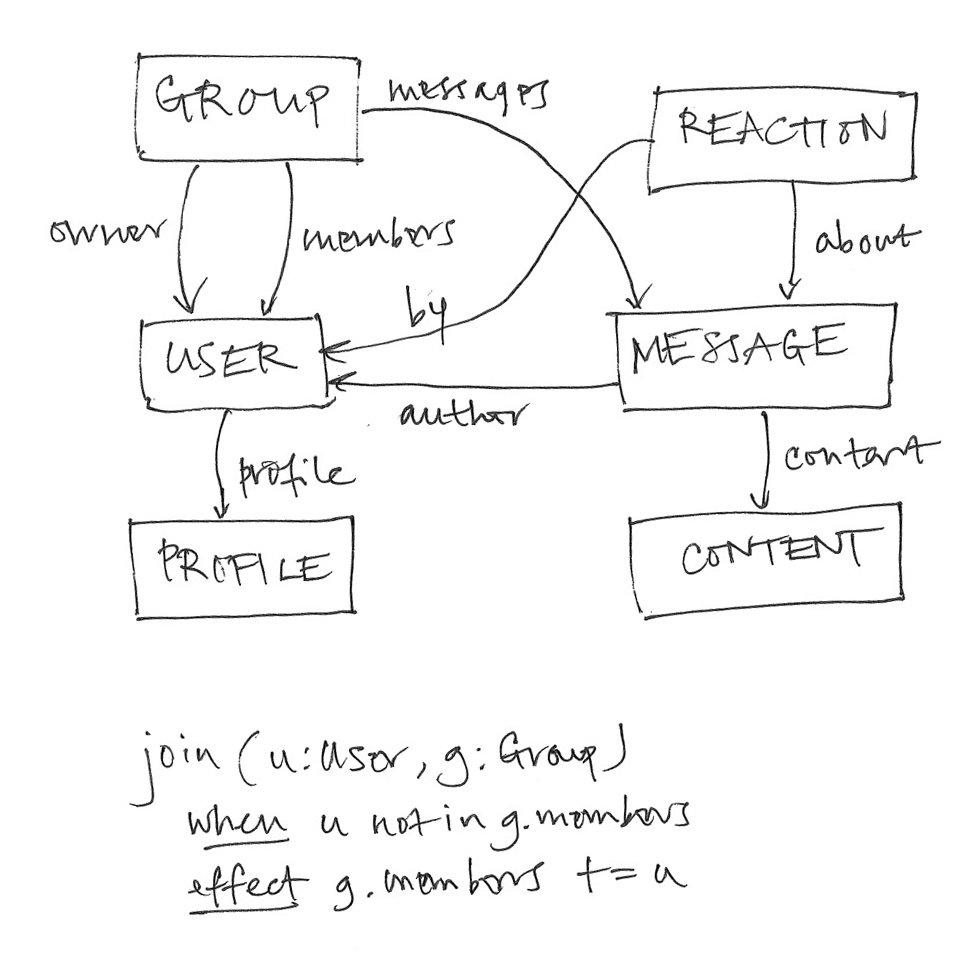 GROUP
messages
REACTION
owner
members
about
by
USER
MESSAGE
author
profile
content
PROFILE
CONTENT
join (u: User, g: Group)
when u not in g.members
effect g.members += u